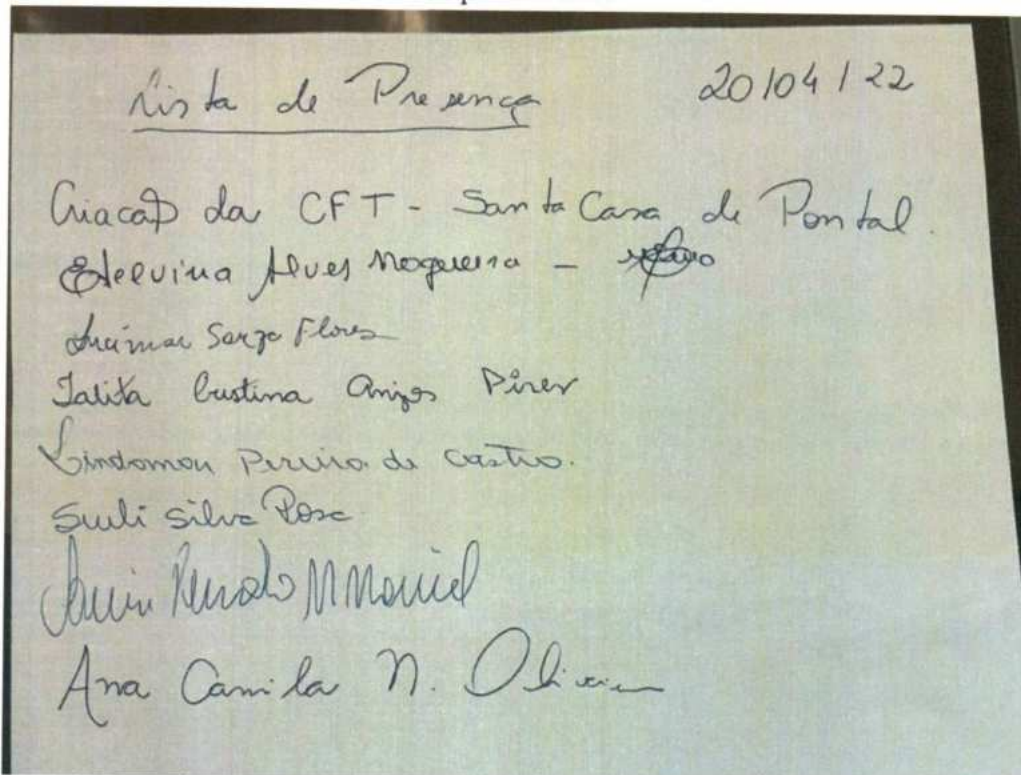 Lista de Presença 20/04/22
Criação da CFT - Santa Casa de Pontal.
Etelvina Alves Nogueira -
Lucimar Sarza Flores
Talita Cristina Anjos Pires
Lindomar Pereira de Castro.
Sueli Silva Rosa
Renato M Maciel
Ana Camila N. Oliveira